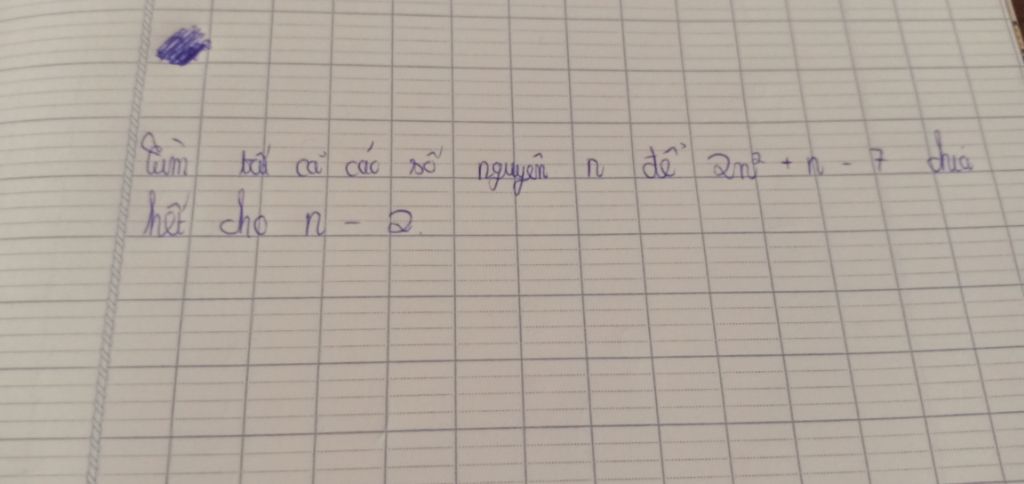 Tìm tất cả các số nguyên n để 2n² + n - 7 chia
hết cho n - 2.